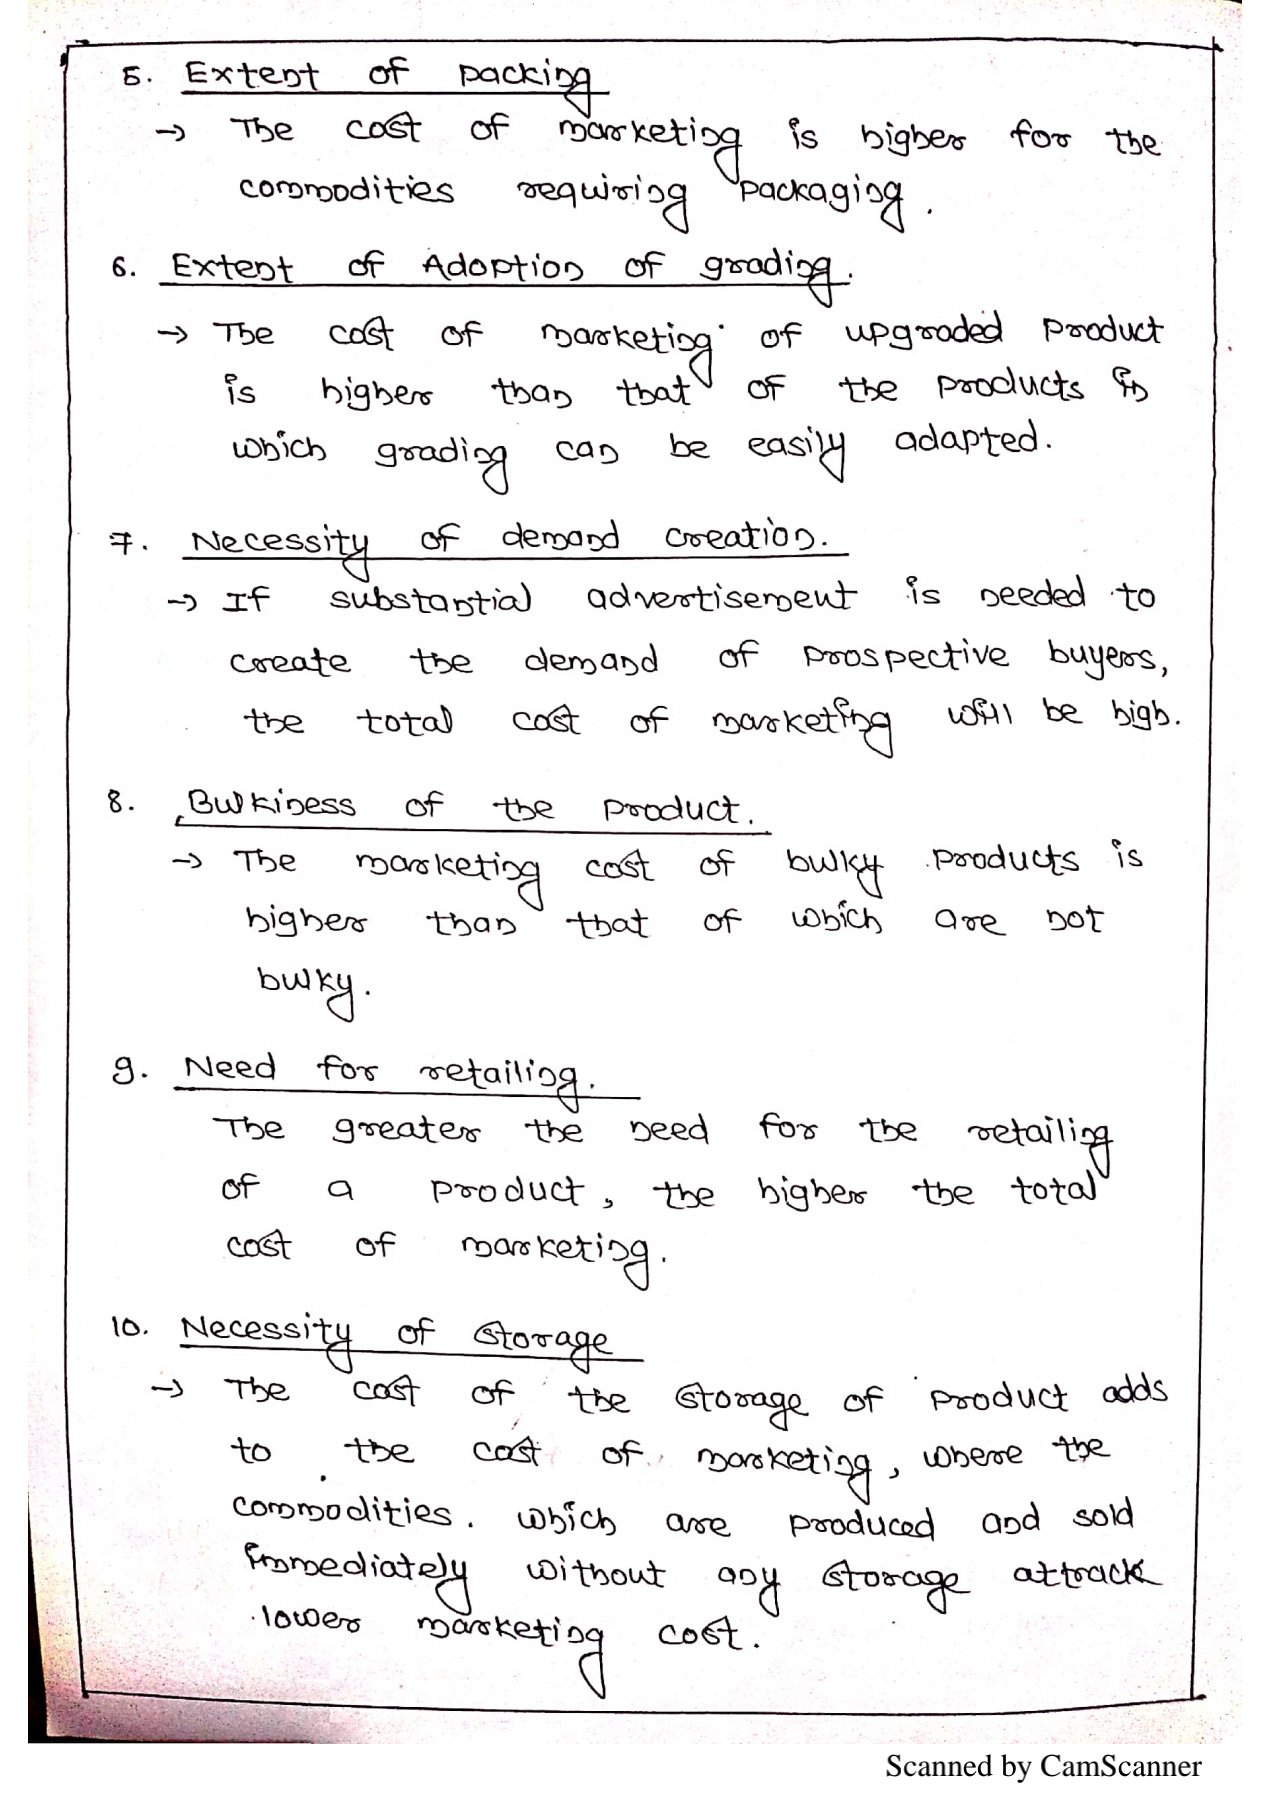 5. Extent of packing
→ The cost of marketing is higher for the
commodities requiring packaging.
6. Extent of Adoption of grading.
→ The cost of marketing of upgraded product
is higher than that of the products in
which grading can be easily adapted.
7. Necessity of demand creation.
→ If substantial advertisement is needed to
create the demand of prospective buyers,
the total cost of marketing will be high.
8. Bulkiness of the product.
→ The marketing cost of bulky products is
higher than that of which are not
bulky.
9. Need for retailing.
The greater the need for the retailing
of a product, the higher the total
cost of marketing.
10. Necessity of storage
→ The cost of the storage of product adds
to the cost of marketing, where the
commodities. which are produced and sold
immediately without any storage attrack
lower marketing cost.
Scanned by CamScanner